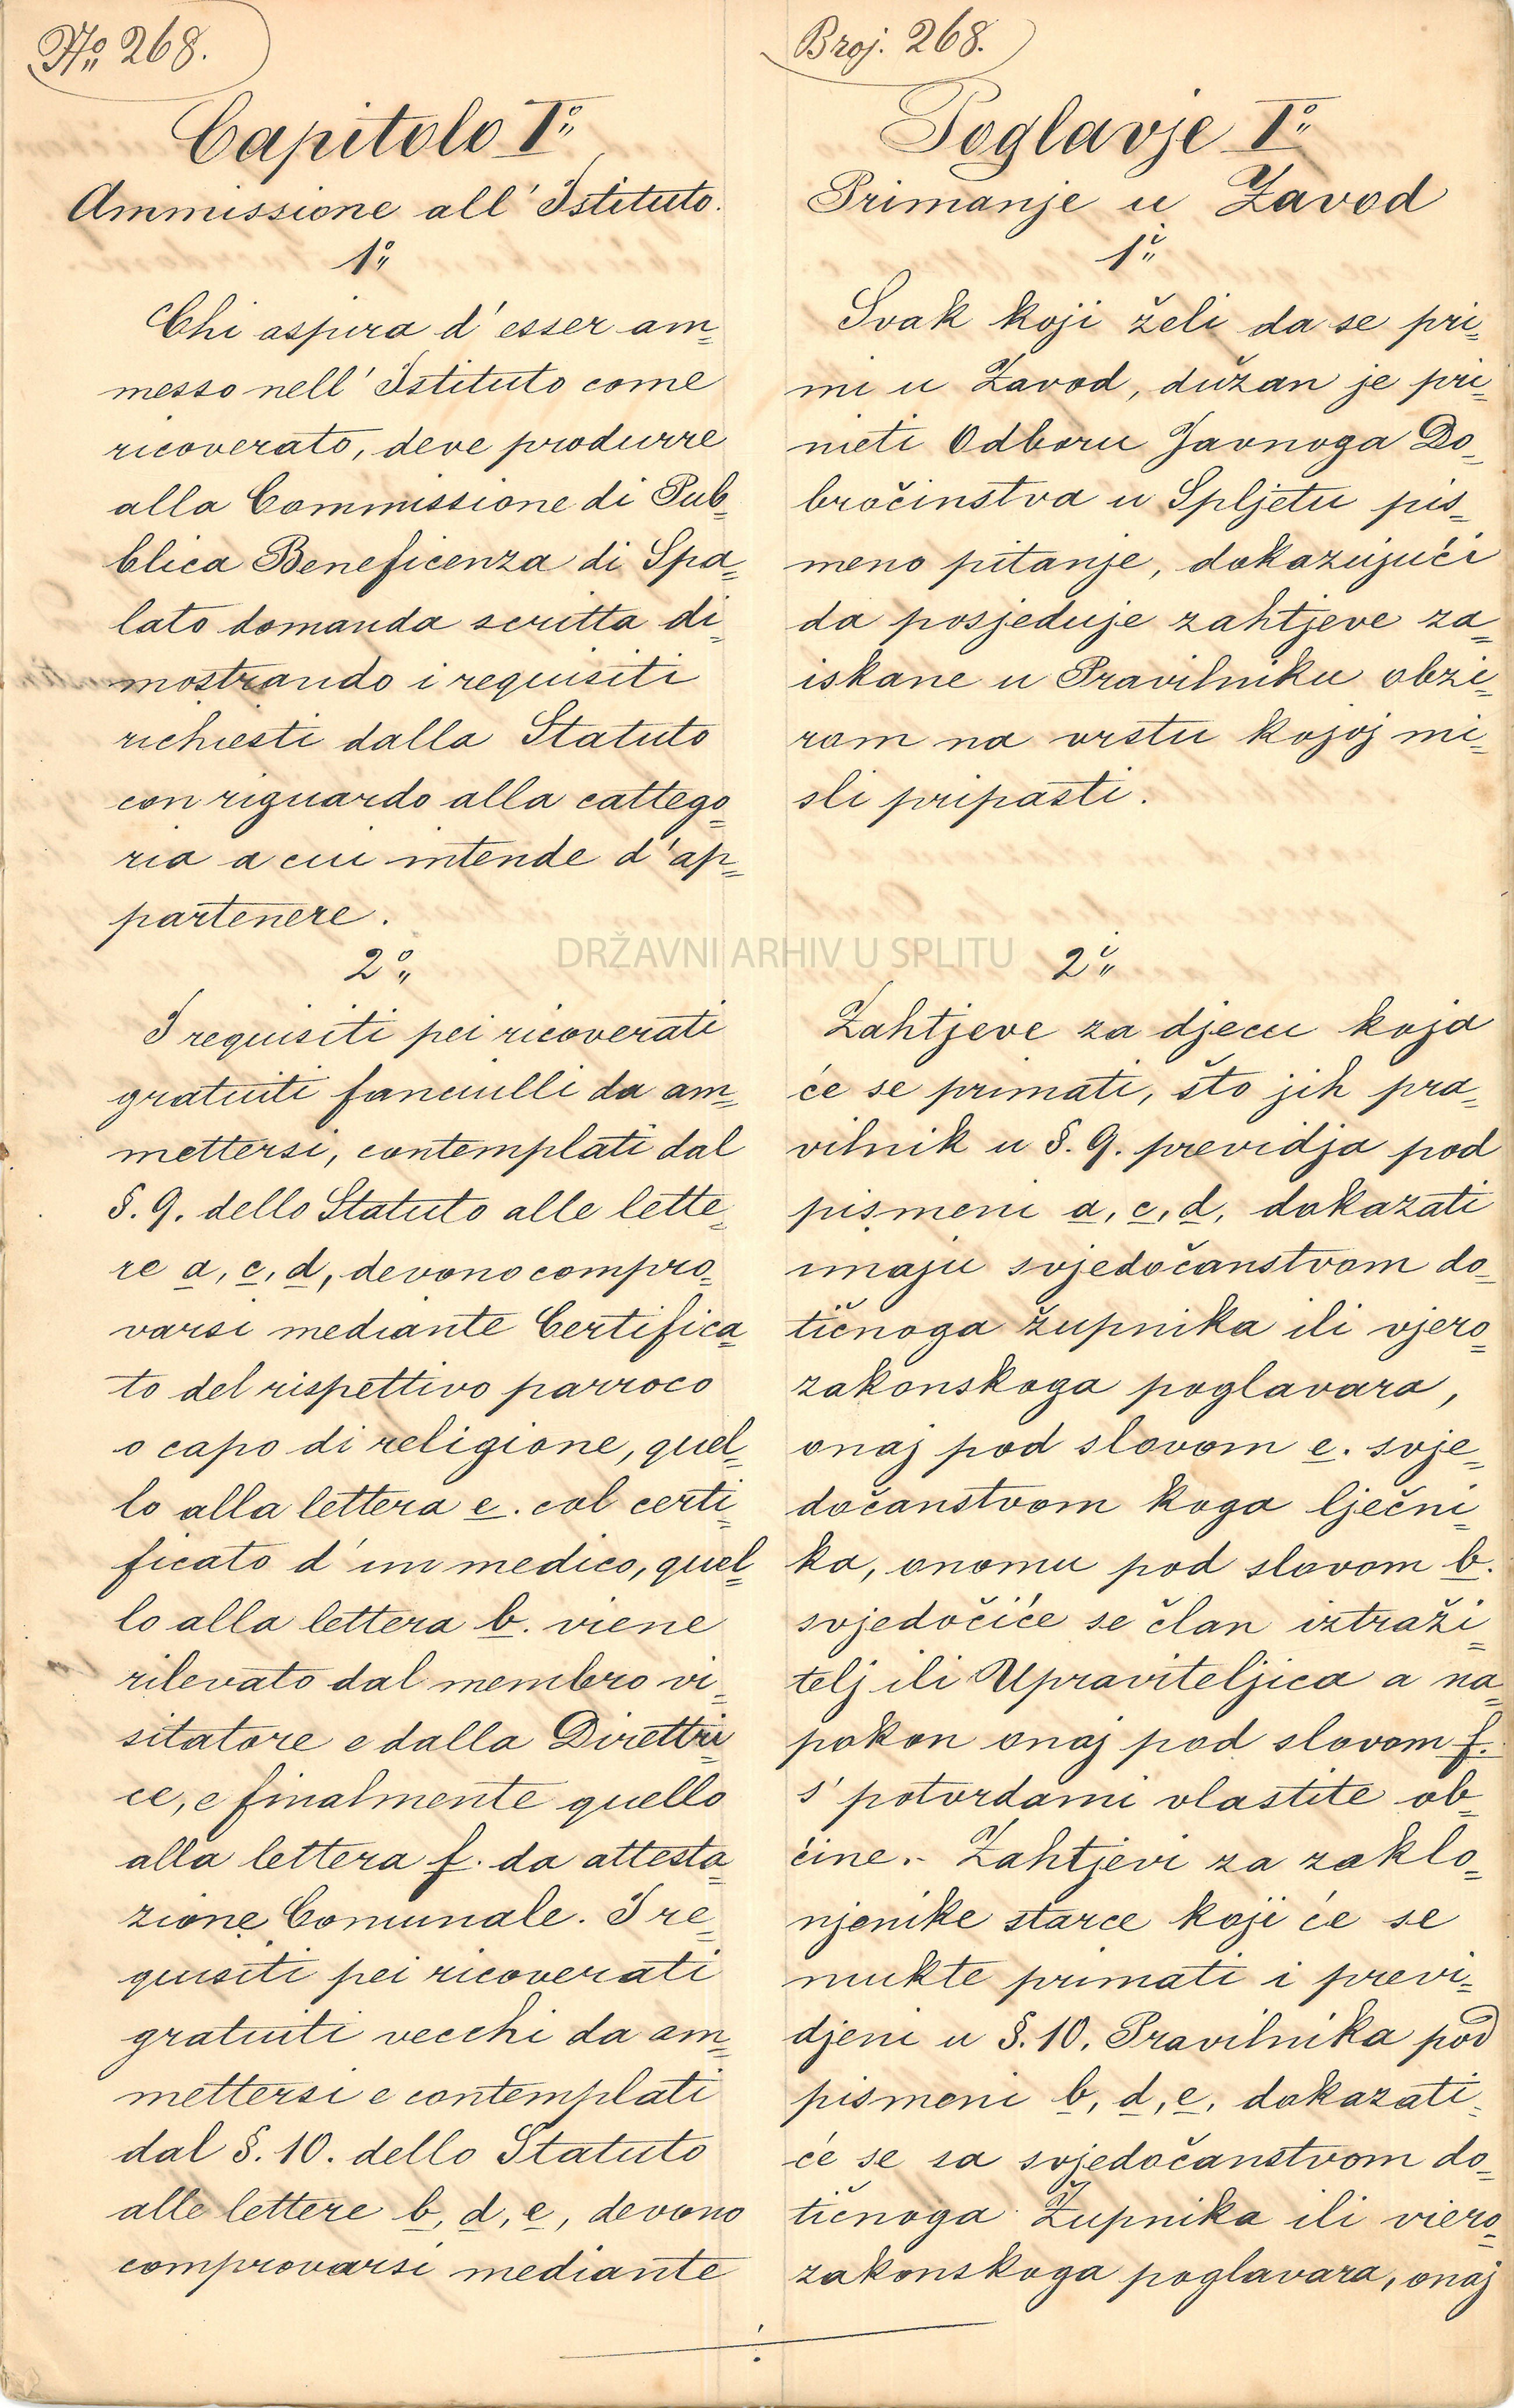 No 268.
Capitolo Io
Ammissione all' Istituto.
1o
Chi aspira d' esser am=
messo nell' Istituto come
ricoverato, deve produrre
alla Commissione di Pub=
blica Beneficenza di Spa=
lato domanda scritta di=
mostrando i requisiti
richiesti dalla Statuto
con riguardo alla cattego=
ria a cui intende d'ap=
partenere.
2o
I requisiti pei ricoverati
gratuiti fanciulli da am=
mettersi, contemplati dal
§. 9. dello Statuto alle lette=
re a, c, d, devono compro=
varsi mediante Certifica=
to del rispettivo parroco
o capo di religione, quel=
lo alla lettera e. col certi=
ficato d' un medico, quel=
lo alla lettera b. viene
rilevato dal membro vi=
sitatore e dalla Direttri=
ce, e finalmente quello
alla lettera f. da attesta=
zione Comunale. I re=
quisiti pei ricoverati
gratuiti vecchi da am=
mettersi e contemplati
dal §. 10. dello Statuto
alle lettere b, d, e, devono
comprovarsi mediante
Broj. 268.
Poglavje Io
Primanje u Zavod
1i
Svak koji želi da se pri=
mi u Zavod, dužan je pri=
nieti Odboru Javnoga Do=
bročinstva u Spljetu pis=
meno pitanje, dokazujući
da posjeduje zahtjeve za=
iskane u Pravilniku obzi=
rom na vrstu kojoj mi=
sli pripasti.
2i
Zahtjeve za djecu koja
će se primati, što jih pra=
vilnik u §. 9. previdja pod
pismeni a, c, d, dokazati
imaju svjedočanstvom do=
tičnoga župnika ili vjero=
zakonskoga poglavara,
onaj pod slovom e. svje=
dočanstvom koga lječni=
ka, onomu pod slovom b.
svjedočiće se član iztraži=
telj ili Upraviteljica a na=
pokon onaj pod slovom f.
s' potvrdami vlastite ob=
ćine.- Zahtjevi za zaklo=
njenike starce koji će se
mukte primati i previ=
djeni u §. 10. Pravilnika pod
pismeni b, d, e, dokazati=
će se sa svjedočanstvom do=
tičnoga Župnika ili viero=
zakonskoga poglavara, onaj
DRŽAVNI ARHIV U SPLITU